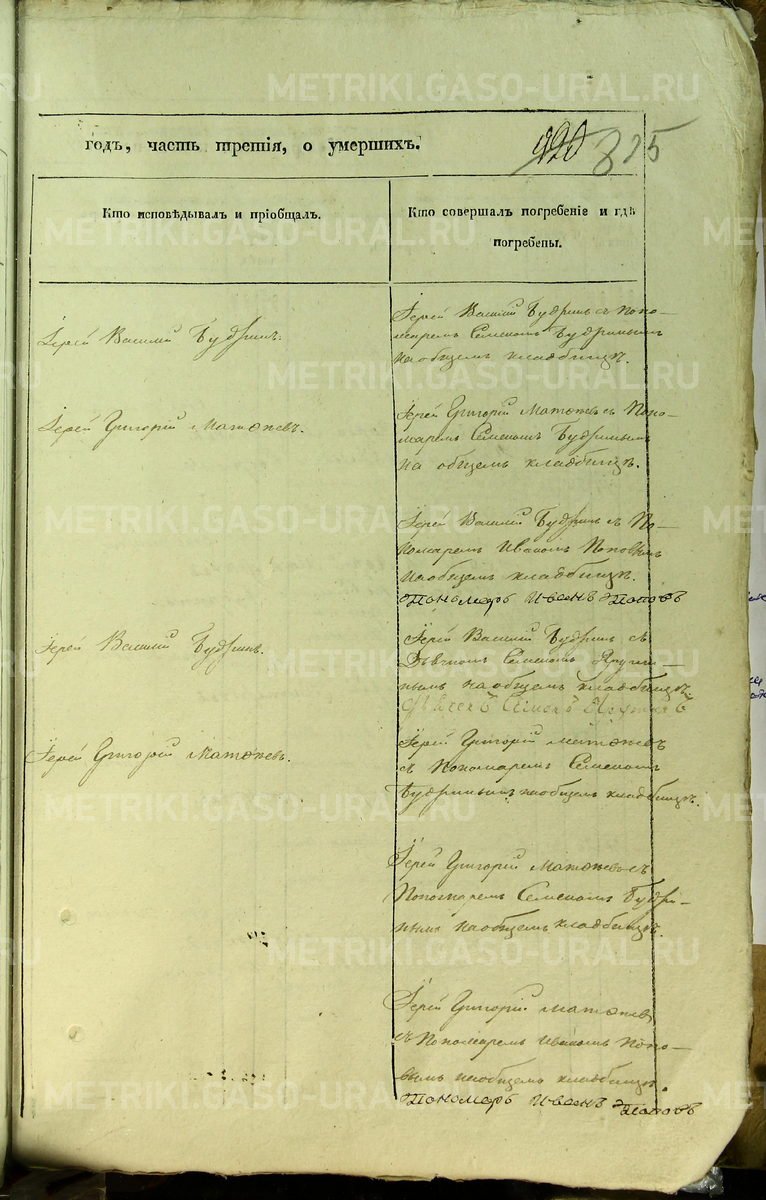 METRIKI.GASO-URAL.RU
годъ, часть третія, о умершихъ.
420 325
Кто исповѣдывалъ и пріобщалъ.
Кто совершалъ погребеніе и гдѣ
погребены.
Іерей Василій Будринъ.
Іерей Василій Будринъ съ Поно-
маремъ Семеномъ Будринымъ
на общемъ кладбищѣ.
Іерей Григорій Матѳѣевъ.
Іерей Григорій Матѳѣевъ съ Поно-
маремъ Семеномъ Будринымъ
на общемъ кладбищѣ.
Іерей Василій Будринъ съ По-
номаремъ Иваномъ Поповымъ
на общемъ кладбищѣ.
Пономарь Иванъ Поповъ
Іерей Василій Будринъ.
Іерей Василій Будринъ съ
Дьячкомъ Семеномъ
нымъ на общемъ кладбищѣ.
Дьячекъ Семенъ
Іерей Григорій Матѳѣевъ.
Іерей Григорій Матѳѣевъ
съ Пономаремъ Семеномъ
Будринымъ на общемъ кладбищѣ.
Іерей Григорій Матѳѣевъ съ
Пономаремъ Семеномъ Будри-
нымъ на общемъ кладбищѣ.
Іерей Григорій Матѳѣевъ
съ Пономаремъ Иваномъ Попо-
вымъ на общемъ кладбищѣ.
Пономарь Иванъ Поповъ